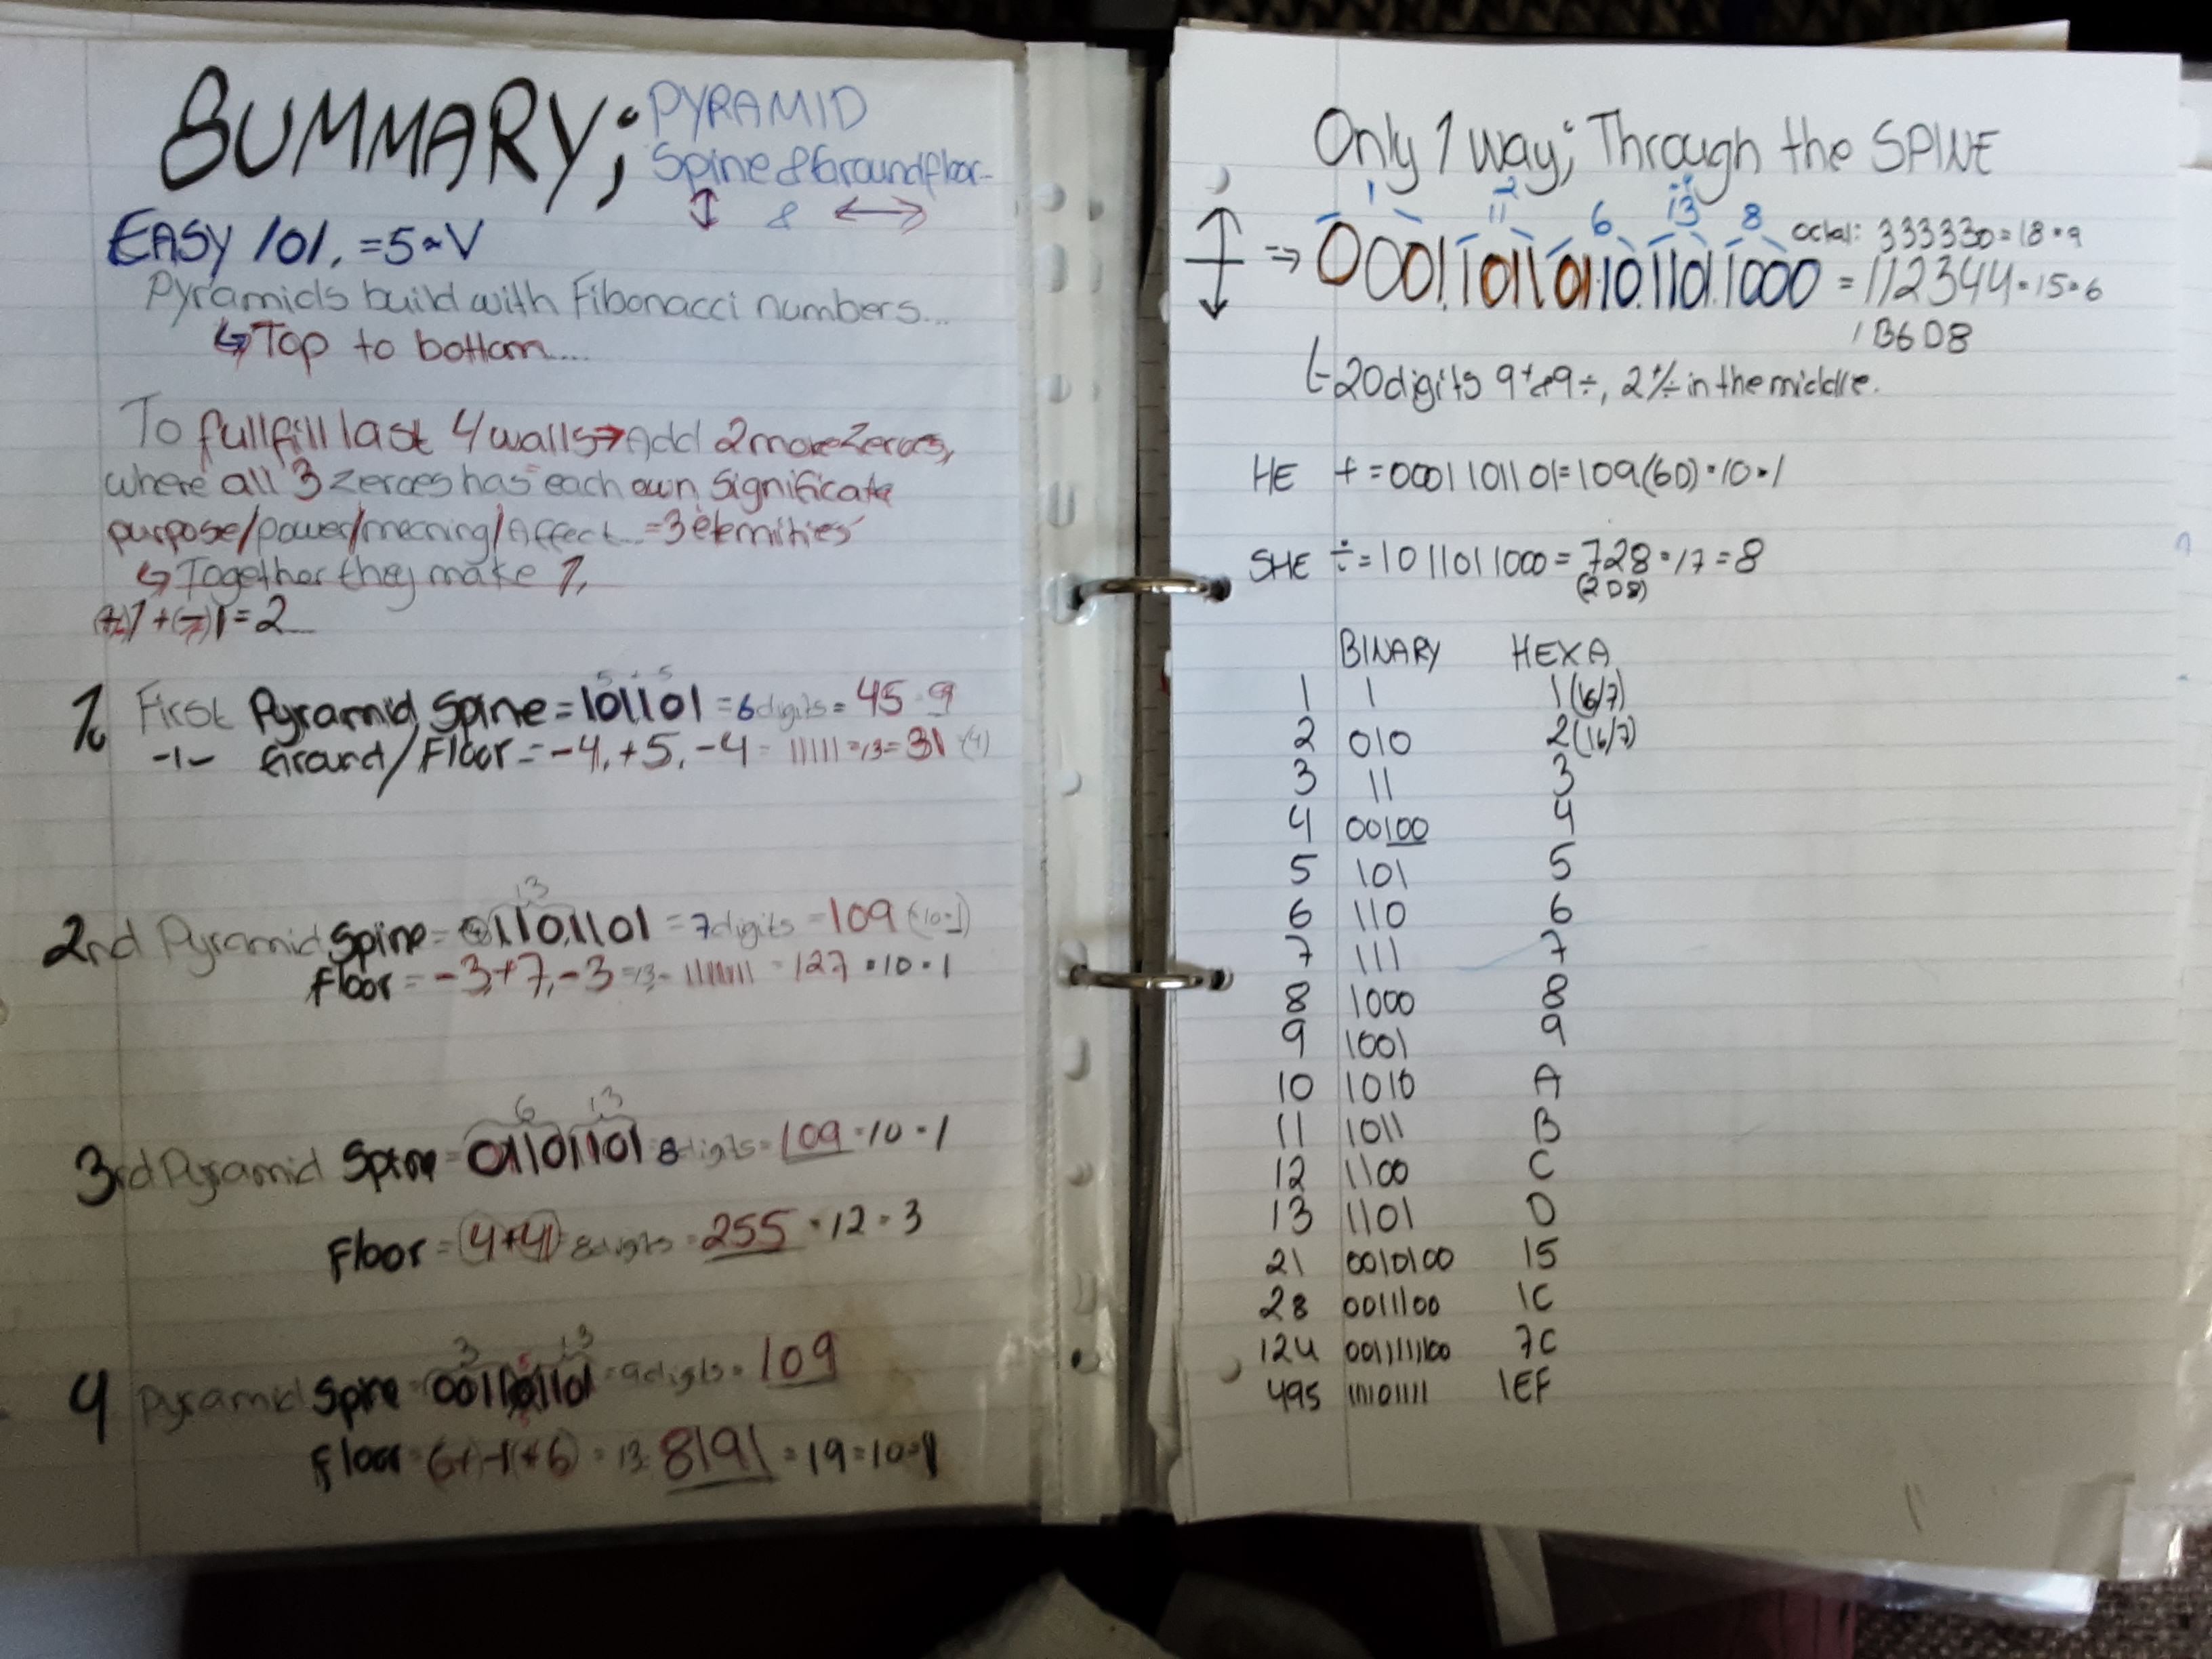 SUMMARY; PYRAMID
Spine & Groundfloor-
↕ & ↔
EASY 101, =5~V
Pyramids build with Fibonacci numbers...
↳Top to bottom....
To fullfill last 4 walls→Add 2 more Zeroes,
where all 3 zeroes has each own significate
purpose/power/meaning/Affect...=3
↳Together they make 1,
1+(-)1=2
5 + 5
1. First Pyramid Spine = 101101 = 6 digits = 45·9
-1- Ground/Floor = -4,+5,-4 = 11111 = 13 = 31 (4)
13
2nd Pyramid Spine = 1101101 = 7 digits = 109 (·10·1)
Floor = -3,+7,-3 =13= 1111111 = 127·10·1
6 13
3rd Pyramid Spine = 01101101 8 digits = 109·10·1
Floor = (4+4) = 8 digits = 255·12·3
3 13
4 Pyramid Spine = 001101101 = 9 digits = 109
Floor = 6+)-1(+6) = 13 = 8191 = 19=10=1
Only 1 Way; Through the SPINE
1 2 13
11 6 8 octal: 333330=18·9
⇒ 00011011011011011000 = 112344·15·6
1B6D8
20 digits 9+&9÷, 2+/÷ in the middle.
HE + = 0001101101=109(6D)·10·1
SHE ÷ = 1011011000 = 728·17=8
(2D8)
BINARY HEXA
1 1 1(16/7)
2 010 2(16/7)
3 11 3
4 00100 4
5 101 5
6 110 6
7 111 7
8 1000 8
9 1001 9
10 1010 A
11 1011 B
12 1100 C
13 1101 D
21 0010100 15
28 0011100 1C
124 001111100 7C
495 111101111 1EF